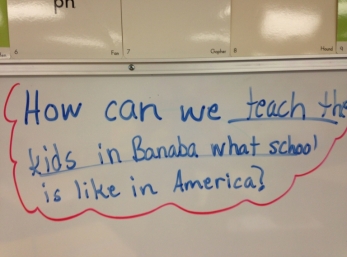 ph
6 Fan 7 Gopher 8 Hound 9
How can we teach the
kids in Banaba what school
is like in America?